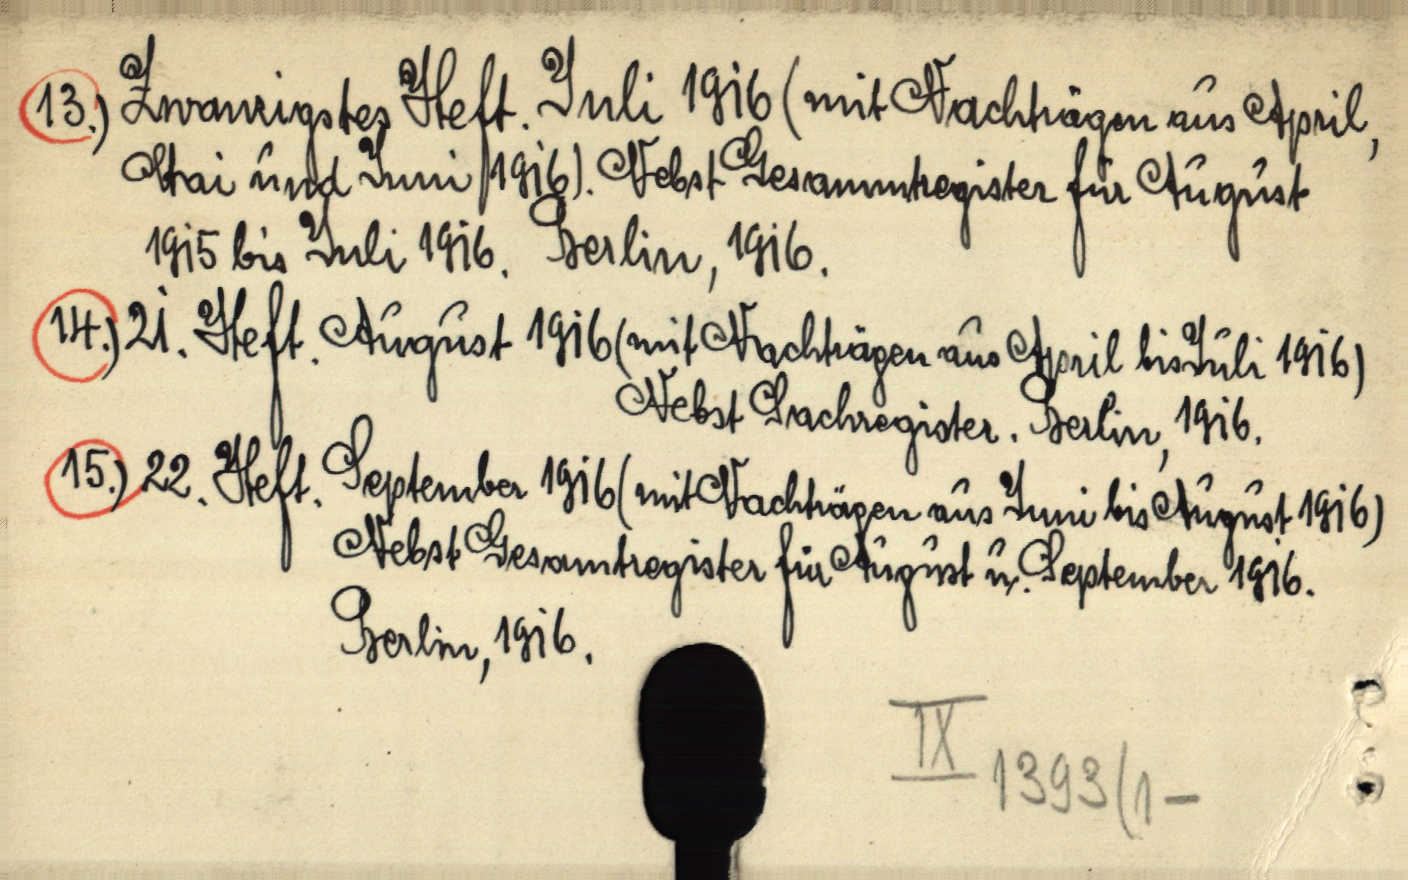 13.) Zwanzigstes Heft. Juli 1916 (mit Nachträgen aus April,
Mai und Juni 1916). Nebst Gesammtregister für August
1915 bis Juli 1916. Berlin, 1916.
14.) 21. Heft. August 1916 (mit Nachträgen aus April bis Juli 1916)
Nebst Sachregister. Berlin, 1916.
15.) 22. Heft. September 1916 (mit Nachträgen aus Juni bis August 1916)
Nebst Gesamtregister für August u. September 1916.
Berlin, 1916.
IX 1393(1-